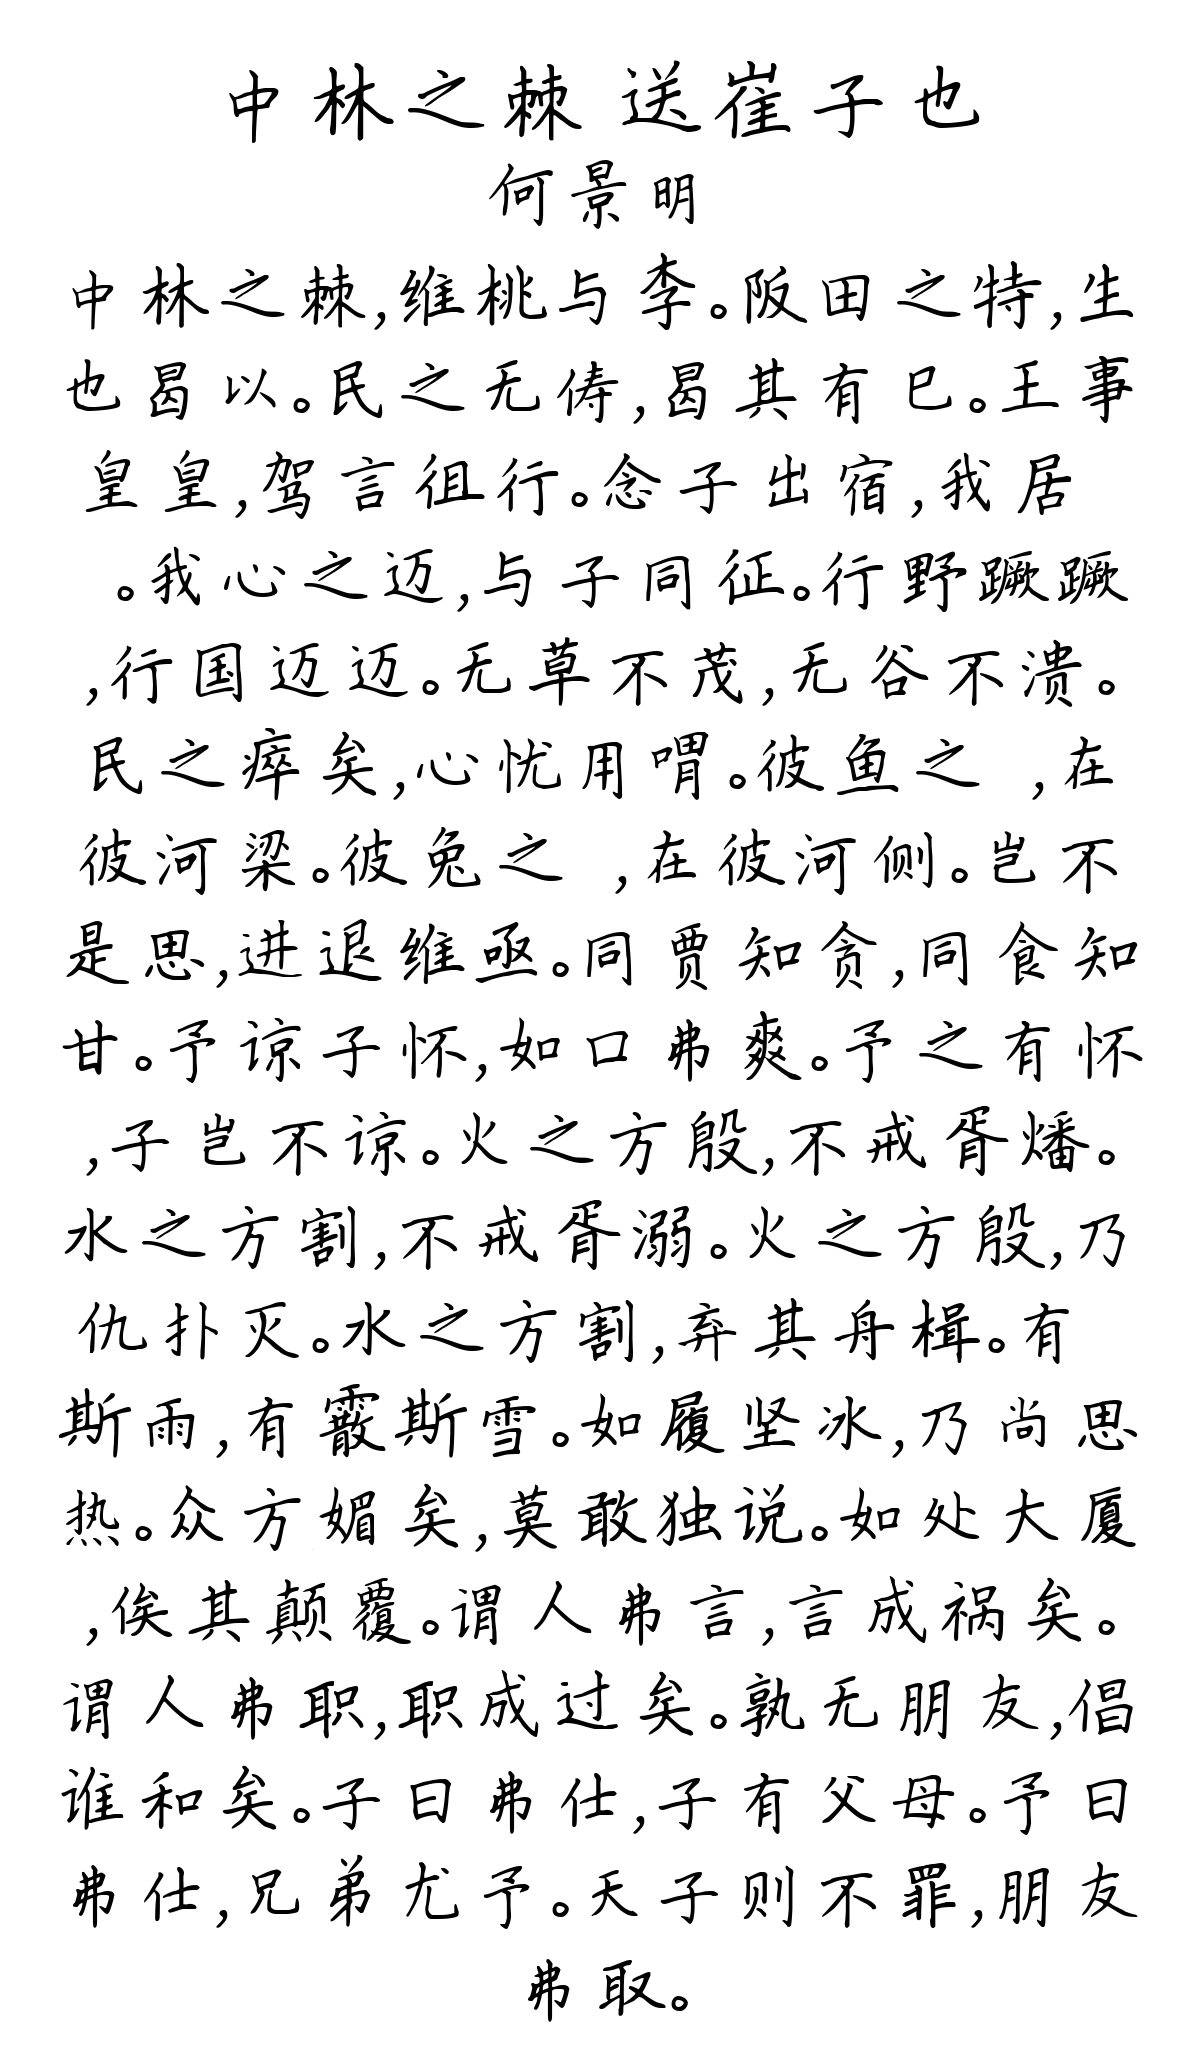 中林之棘 送崔子也
何景明
中林之棘,维桃与李。阪田之特,生
也曷以。民之无俦,曷其有已。王事
皇皇,驾言徂行。念子出宿,我居
。我心之迈,与子同征。行野蹶蹶
,行国迈迈。无草不茂,无谷不溃。
民之瘁矣,心忧用喟。彼鱼之 ,在
彼河梁。彼兔之 ,在彼河侧。岂不
是思,进退维亟。同贾知贪,同食知
甘。予谅子怀,如口弗爽。予之有怀
,子岂不谅。火之方殷,不戒胥燔。
水之方割,不戒胥溺。火之方殷,乃
仇扑灭。水之方割,弃其舟楫。有
斯雨,有霰斯雪。如履坚冰,乃尚思
热。众方媚矣,莫敢独说。如处大厦
,俟其颠覆。谓人弗言,言成祸矣。
谓人弗职,职成过矣。孰无朋友,倡
谁和矣。子曰弗仕,子有父母。予曰
弗仕,兄弟尤予。天子则不罪,朋友
弗取。